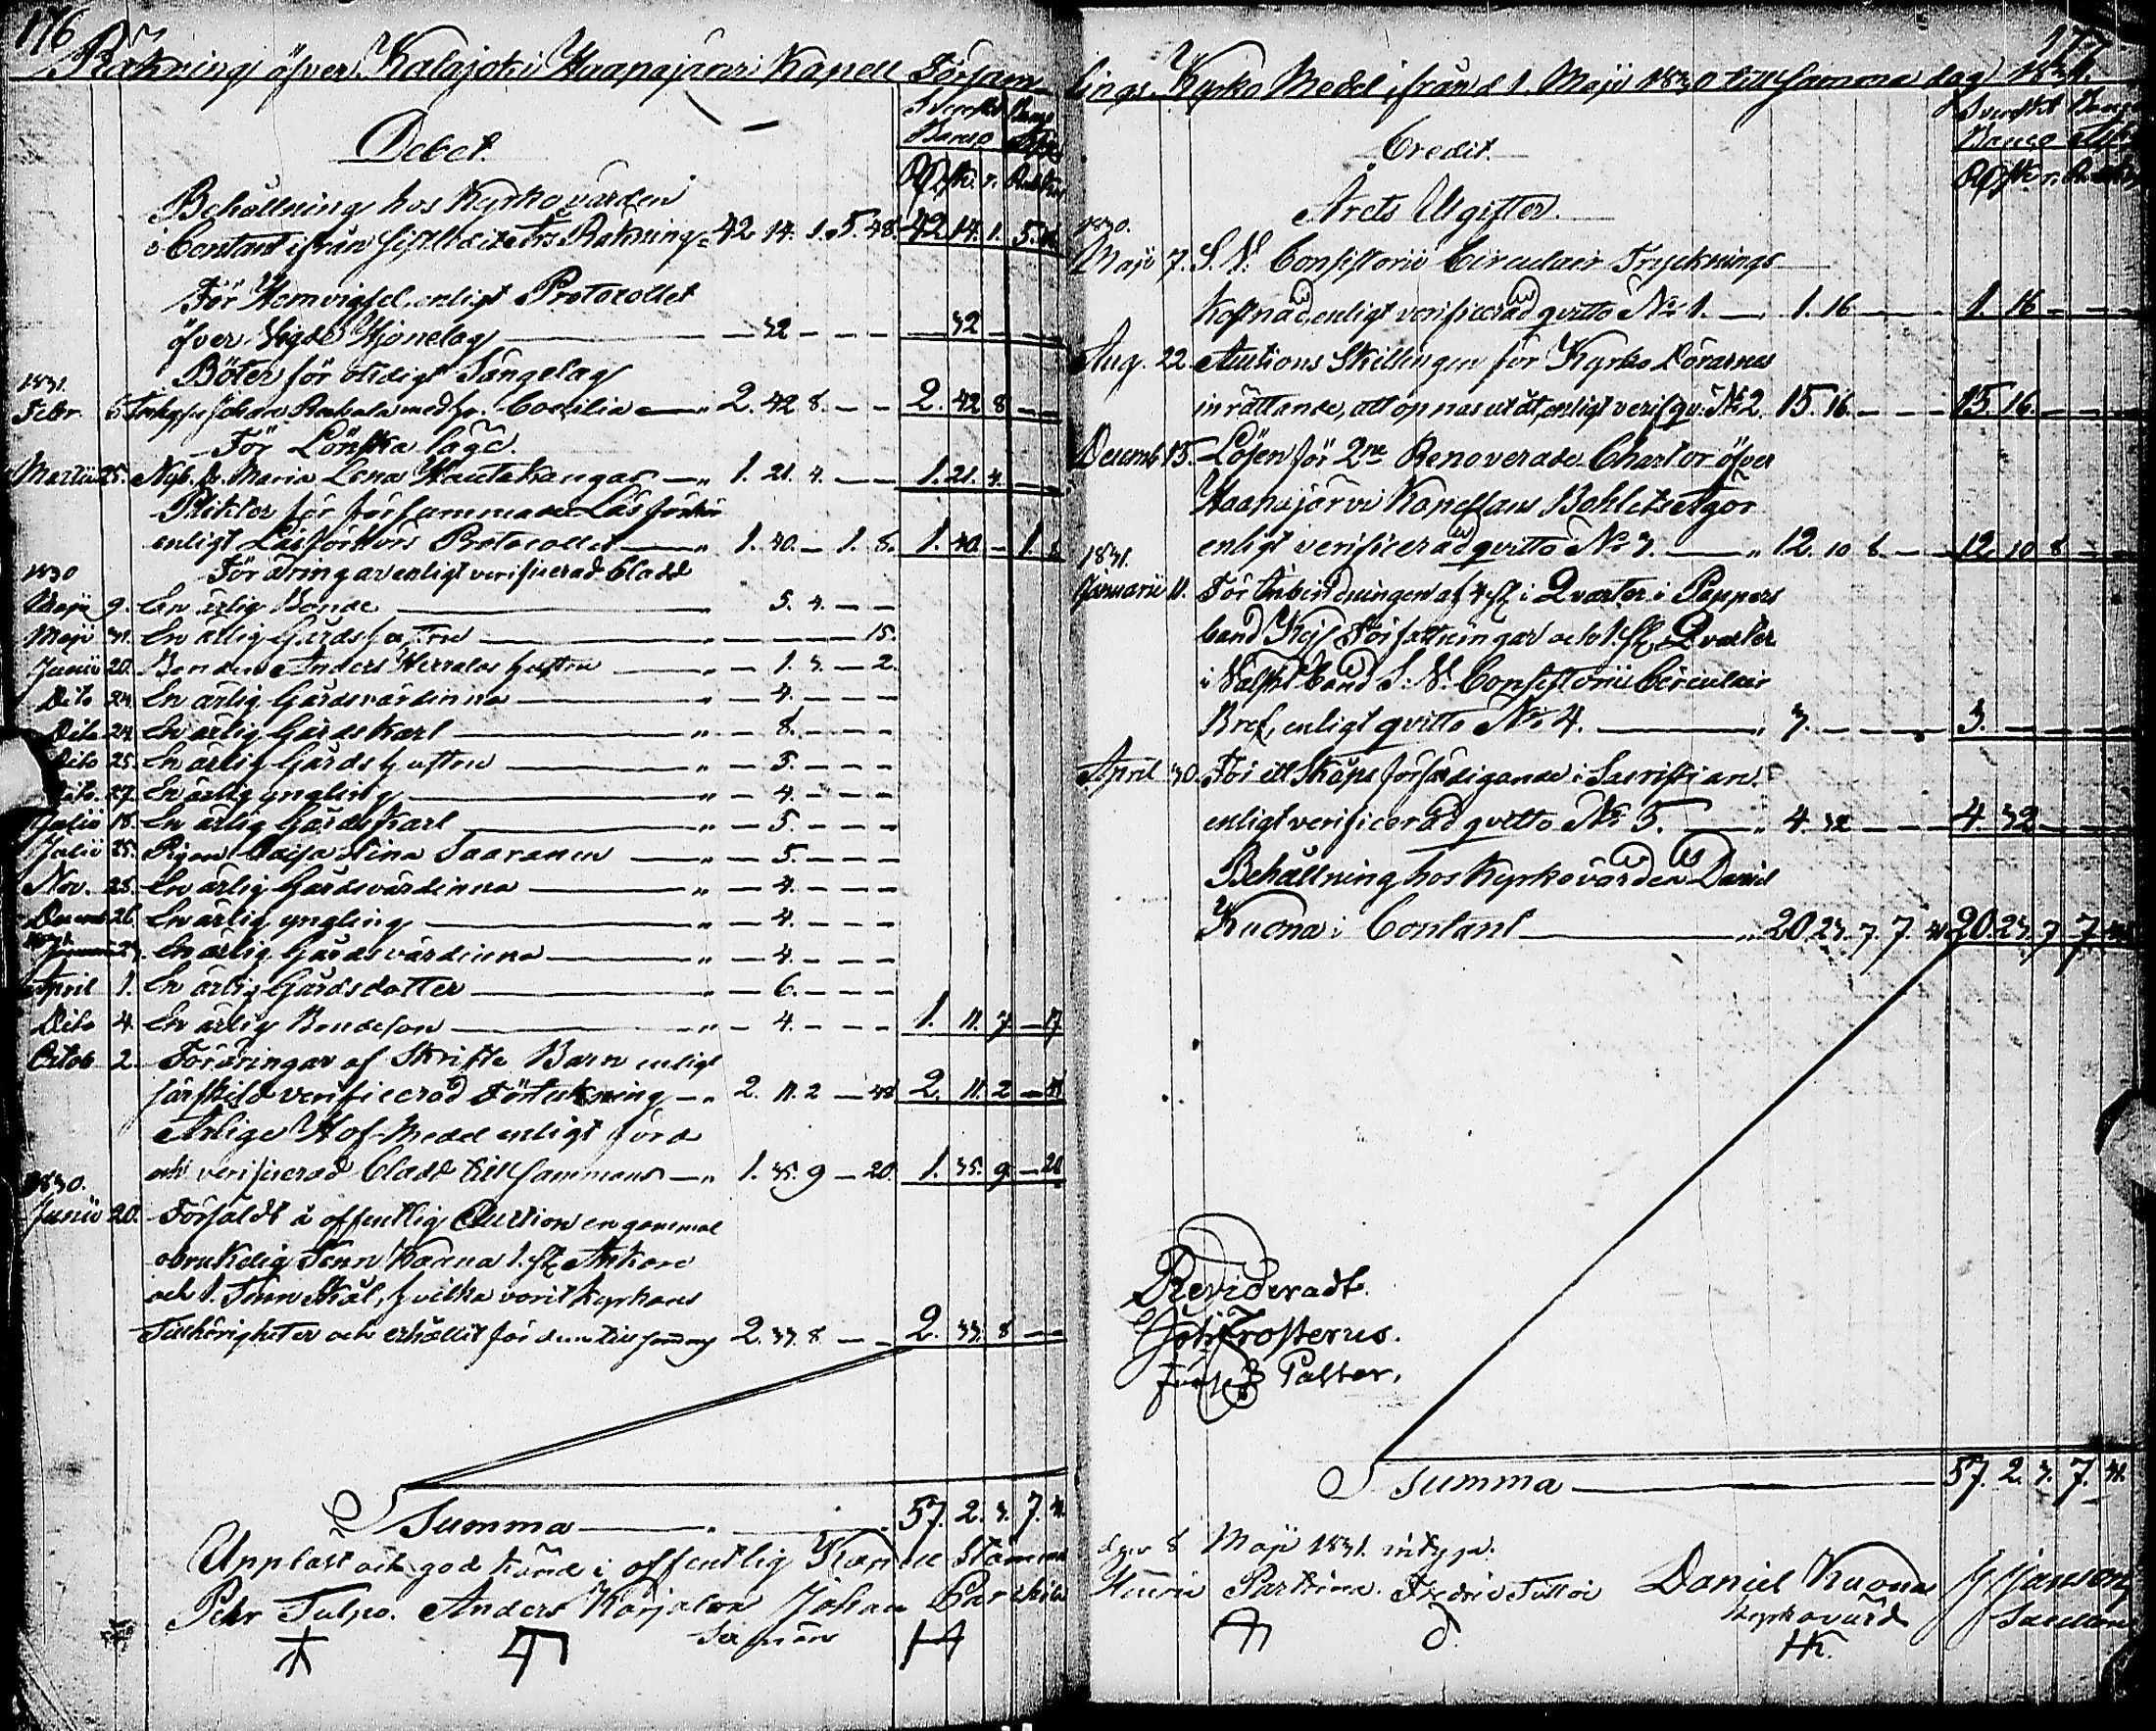 176
Räkning öfver Kalajoki Haapajärvi Kapell Församlings
Debet.
Svenskt Banco
Banco Ass.
Behållning hos Kyrkovärden
i Contant ifrån sistledit års Räkning 42. 14. 1. 5. 48. 42 14. 1. 5. 48
För Hemvigsel, enligt Protocollet
öfver vigde Hjonelag — 32 — — — 32
Böter för otidigt Sängelag
1831.
Febr. Johan med h. Caecilia — 2. 42. 8. — — 2. 42 8
För Lönska läge.
Martii 25. Nyb. d. Maria Lena Hautakangas — 1. 21. 4. — — 1. 21. 4.
Plikter för försummade Läsförhör
enligt Läsförhörs Protocollet — 1. 40. — 1. 8. 1. 40 — 1. 8
1830
Föräringar enligt verificerad bladd
Maji 9. En ärlig Bonde — 5. 4. — —
Maji 31. En ärlig Gårds hustru — — — 15.
Junii 20. Bonden Anders Herralas hustru — 1. 3. — 2.
Dito 24. En ärlig Gårdsvärdinna — 4. — — —
Dito 24. En ärlig Gårdskarl — 8. — — —
Dito 25. En ärlig Gårdshustru — 5. — — —
Dito. 27. En ärlig yngling — 4. — — —
Julii 18. En ärlig Gårdskarl — 5. — — —
Julii 25. Pigan Caisa Stina Saaranen — 5. — — —
Nov. 28. En ärlig Gårdsvärdinna — 4. — — —
Decemb 26. En ärlig yngling — 4. — — —
1831. Januarii En ärlig Gårdsvärdinna — 4. — — —
April 1. En ärlig Gårdsdotter — 6. — — —
Dito 4. En ärlig Bondeson — 4. — — — 1. 11. 7 — 17
Octob 2. Föräringar af Skrifte Barn enligt
särskild verificerad Förteckning — 2. 11. 2 — 48 2. 11. 2 — 48
Årlige Hof-Medel enligt förd
och verificerad bladd tillsammans — 1. 35. 9 — 20. 1. 35. 9 — 20
1830.
Junii 20. Försåldt å offentlig Auction en gammal
obrukelig Tenn Kanna 1. st. Ankare
och 1. Tenn Skål, hvilka varit kyrkans
Tillhörigheter och erhållit för dem tillsamm. 2. 33. 8 — — 2. 33. 8 — —
Summa — 57. 2. 3. 7. 31.
Uppläst och godkänd i offentlig Kapell Stämma
Petr Tulpo. Anders Karjalan Johan
Sexman
177
Kyrko Medel ifrån d 1. Maji 1830 till samma dag 1831.
Credit.
Svenskt Banco
Banco Ass.
Årets Utgifter.
1830.
Maji 7. S. V. Consistorii Circulair Trycknings
kostnad, enligt verificerad qvitto No 1. — 1. 16 — — 1. 16 — —
Aug. 22. Auctions Skillingen för Kyrko Dörarnes
inrättande, att öpnas utåt, enligt verif. qv. No 2. 15. 16. — — 15. 16. — —
Decemb 15. Lösen för 2ne Renoverade Chartor öfver
Haapajärvi Kapellans Bohls Ägor
enligt verificerad qvitto No 3. — 12. 10 8. — 12. 10 8
1831.
Januarii 11. För Inbindningen af 4 st. i Qvarter i Pappers
band Kejs. Författningar och 1. st. Qvarter
i Valskt band S. V. Consistorii Circulair
Bref, enligt qvitto No 4. — 3. — — 3. — —
April 30. För ett Skåps förfärdigande i Sacristjan
enligt verificerad qvitto No 5. — 4. 32 — — 4. 32
Behållning hos Kyrkovärden Daniel
Kuona i Contant — 20. 23. 7. 7. 31 20. 23. 7 7. 31
Revideradt.
Joh. Frosterus.
Pastor.
Summa — 57. 2. 3. 7. 31.
den 8 Maji 1831. intyga.
Henric Parkkina. Fredric Daniel Kuona
Kyrkovärd
HK.